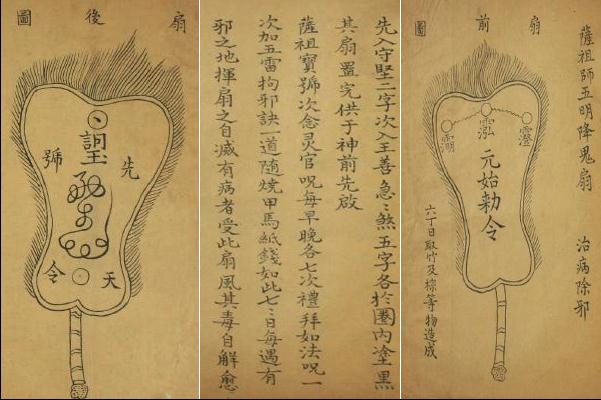 薩祖師五明降鬼扇 治病除邪
扇前圖
元始勅令
六丁日取竹及棕等物造成
先入守堅二字次入王善急〻煞五字各於圈內塗黑
其扇置完供于神前先啟
薩祖寶號次念灵官咒每早晚各七次禮拜如法咒一
次加五雷拘邪訣一道隨燒甲馬紙錢如此七〻日每遇有
邪之地揮扇之自滅有病者受此扇風其毒自解愈
扇後圖
先天
號令